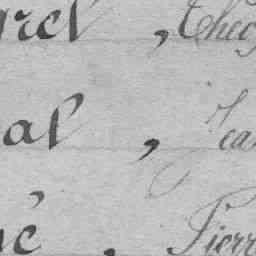 grel , Théo
al , Jea
né , Pierr